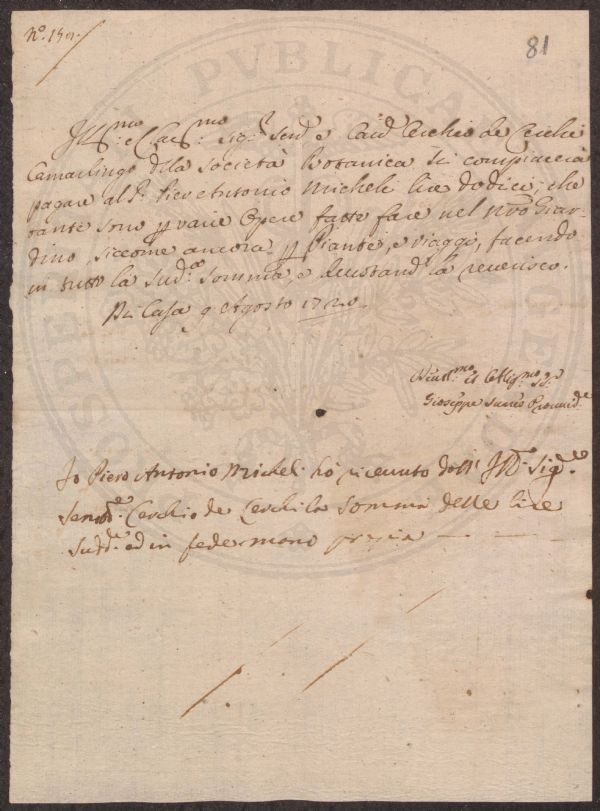 N.º 150.
81
Ill.mo e Clar.mo Sig.r Sen.re Cav.e Cerchio de Cerchi
Camarlingo della Società Botanica si compiacerà
pagare al S.r Pier Antonio Micheli lire dodici, che
tante sono p varie Opere fatte fare nel nro Giar-
dino, siccome ancora p Piante, e viaggi, facendo
in tutto la sud.a somma, e la reverisco.
Di Casa 9 Agosto 1720
Giuseppe
Io Piero Antonio Micheli ho ricevuto dall' Ill. Sig.re
Senat.e Cerchio de Cerchi la somma delle lire
sudd.e ed in fede mano propria
PVBLICAE